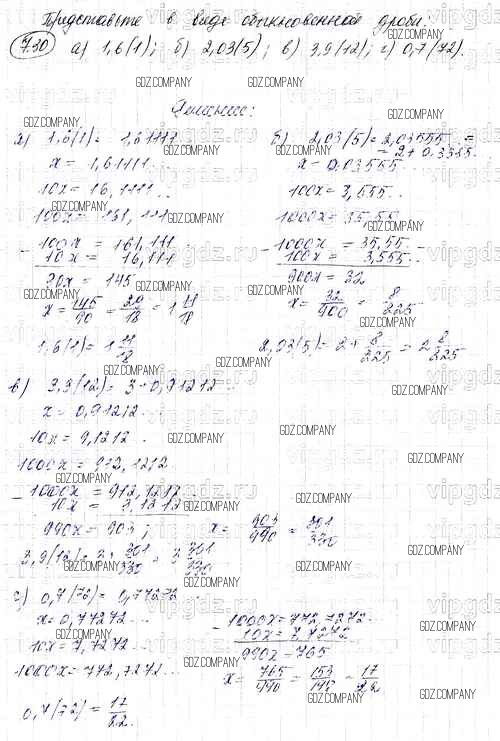 Представьте в виде обыкновенной дроби:
730 а) 1,6(1); б) 2,03(5); в) 3,9(12); г) 0,7(72).
Решение:
а) 1,6(1) = 1,61111...
x = 1,61111...
10x = 16,1111...
100x = 161,111...
- 100x = 161,111...
10x = 16,111
90x = 145
x = 145/90 = 29/18 = 1 11/18
1,6(1) = 1 11/18
б) 2,03(5) = 2,03555 =
= 2 + 0,3355...
x = 0,03555...
100x = 3,555...
1000x = 35,55
- 1000x = 35,55...
100x = 3,555...
900x = 32
x = 32/900 = 8/225
2,03(5) = 2 + 8/225 = 2 8/225
в) 3,9(12) = 3 + 0,91212...
x = 0,91212...
10x = 9,1212...
1000x = 912,1212
- 1000x = 912,1212...
10x = 9,1212...
990x = 903; x = 903/990 = 301/330
3,9(12) = 3 + 301/330 = 3 301/330
г) 0,7(72) = 0,77272...
x = 0,77272...
10x = 7,7272...
1000x = 772,7272...
- 1000x = 772,7272...
10x = 7,7272
990x = 765
x = 765/990 = 153/198 = 17/22
0,7(72) = 17/22.
GDZ.COMPANY
vipgdz.ru